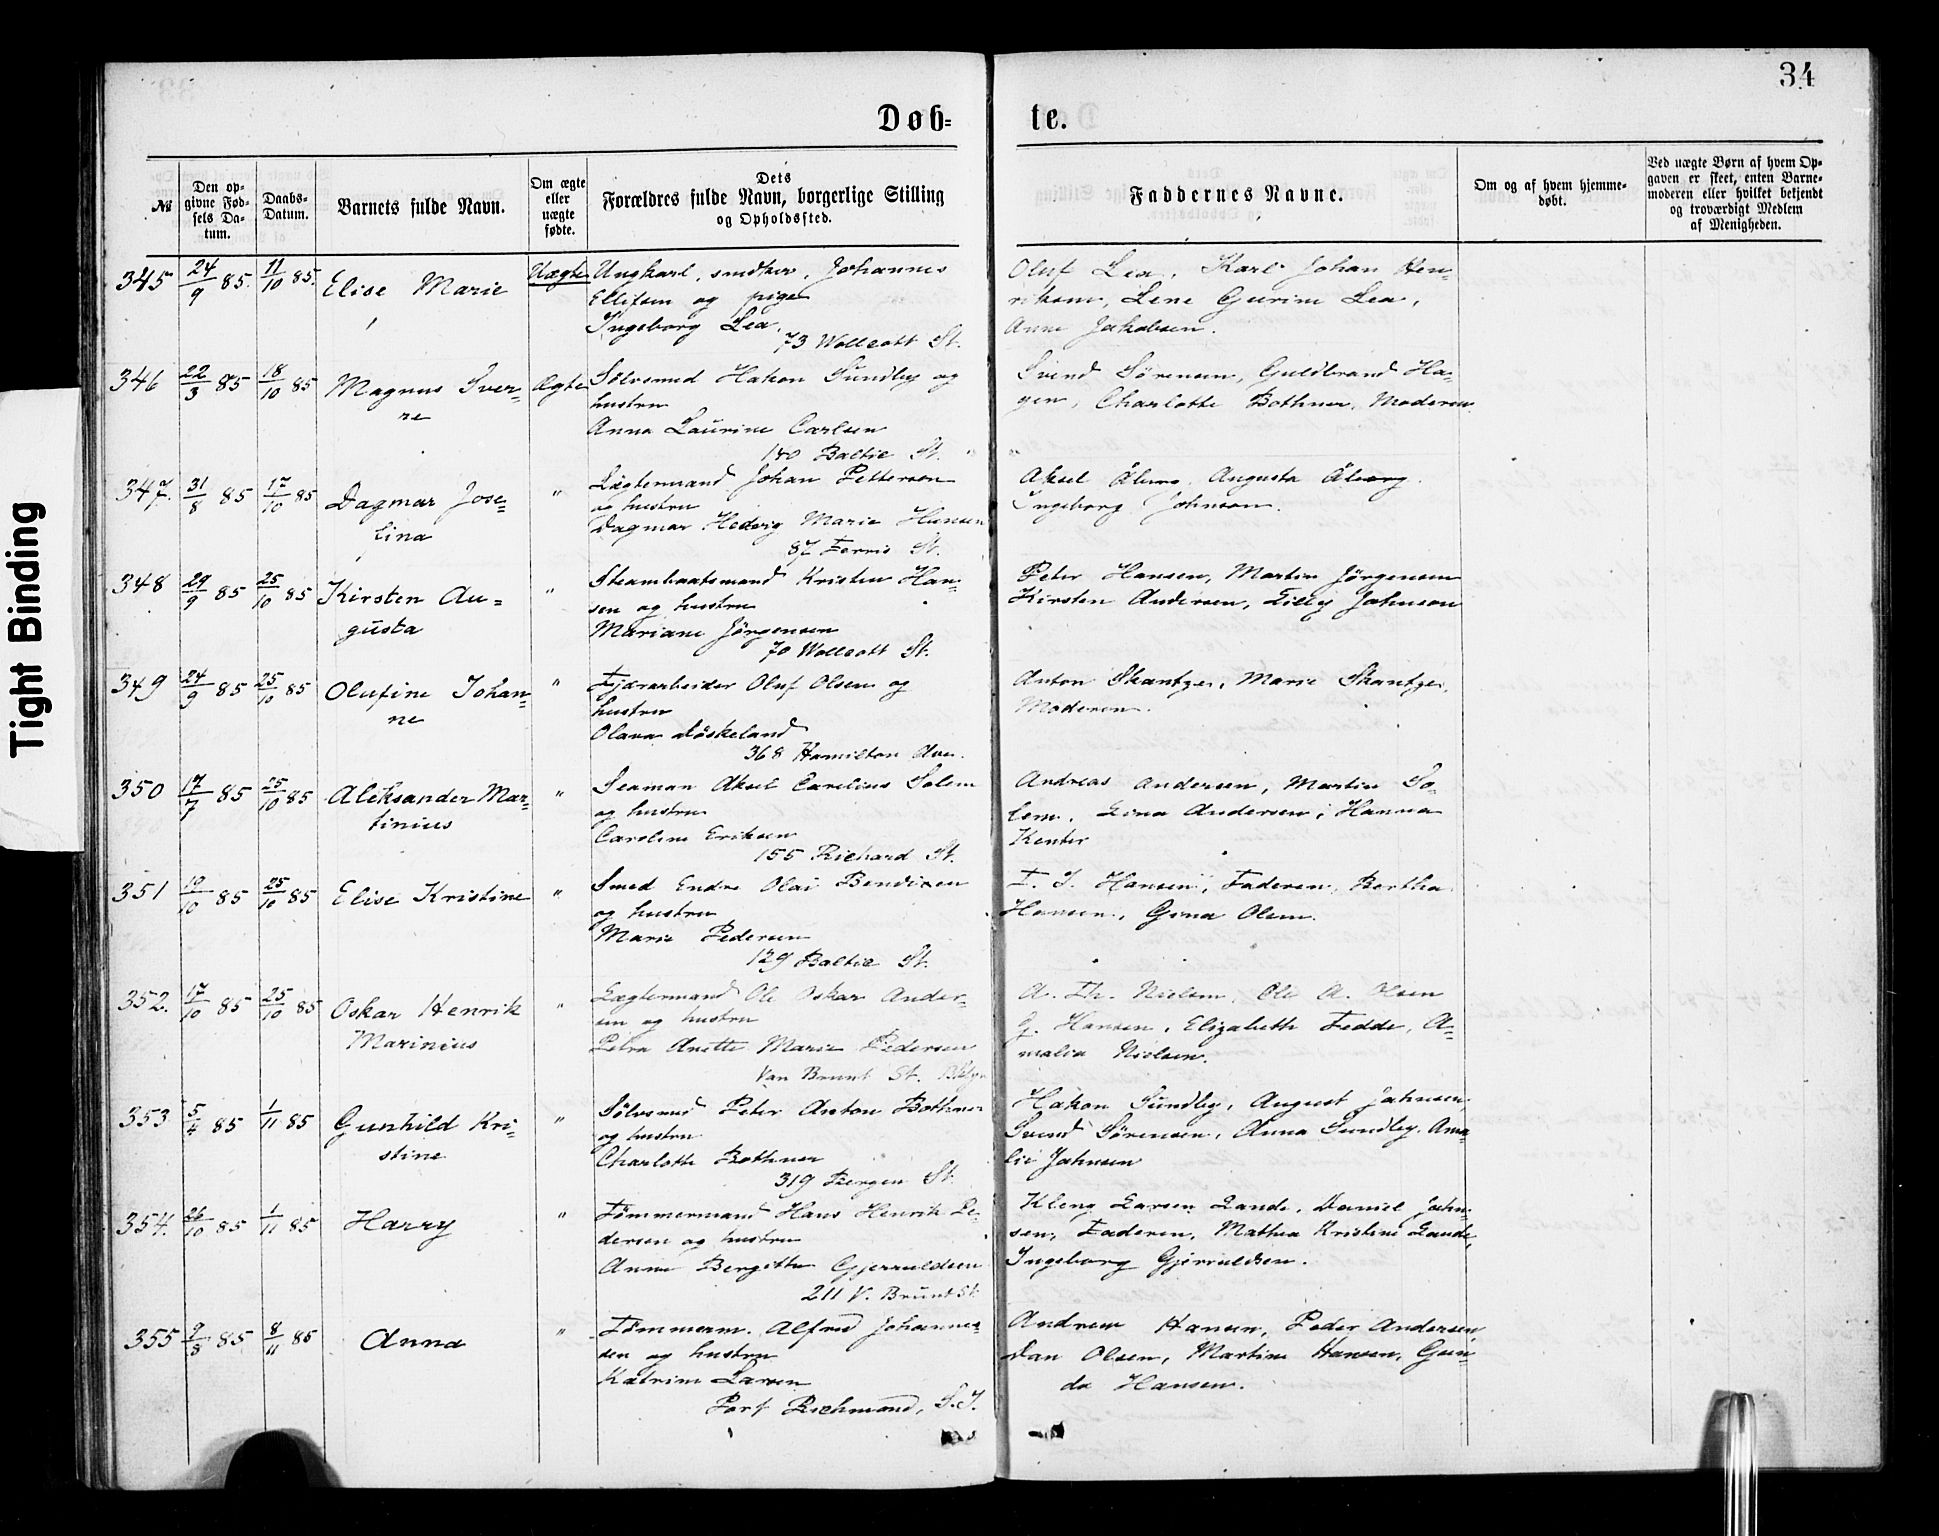 Tight Binding
34
Døb-
te.
№
Den op-
givne Fød-
sels Da-
tum.
Daabs-
Datum.
Barnets fulde Navn.
Om ægte
eller
uægte
fødte.
Dets
Forældres fulde Navn, borgerlige Stilling
og Opholdssted.
Faddernes Navne.
Om og af hvem hjemme-
døbt.
Ved uægte Børn af hvem Op-
gaven er skeet, enten Barne-
moderen eller hvilket bekjendt
og troværdigt Medlem
af Menigheden.
345 24/9 85. 11/10 85. Elise Marie Uægte
Ungkarl, snedker, Johannes
Ellifsen og pige
Ingeborg Lea.
73 Wollcott St.
Oluf Lea, Karl Johan Hen-
riksen, Lene Gurine Lea,
Anne Jakobsen.
346 22/3 85 18/10 85 Magnus Sver-
re
Ægte
Sölvsmed Hakon Sundby og
hustru
Anna Laurine Carlsen
140 Baltic St.
Svend Sörensen, Guldbrand Ha-
gen, Charlotte Bothner, Moderen
347. 31/8 85 17/10 85 Dagmar Jose-
fina
"
Lægtermand Johan Petterson
og hustru
Dagmar Hedvig Marie Hansen
87 Ferris St.
Aksel Åberg, Augusta Åberg.
Ingeborg Johnson.
348 29/9 85 25/10 85 Kirsten Au-
gusta
"
Steambaatsmand Kristen Han-
sen og hustru
Mariane Jörgensen
70 Wollcott St.
Peter Hansen, Martin Jörgensen
Kirsten Andersen, Lilly Johnson
349 24/9 85 25/10 85 Olufine Johan-
ne
"
Oluf Olsen og
hustru
Olava
368 Hamilton Ave.
Anton Skantze, Marie Skantze,
Moderen.
350 17/7 85 25/10 85 Aleksander Mar-
tinius
"
Seaman Aksel Carelius Solem
og hustru
Caroline Eriksen
155 Richard St.
Andreas Andersen, Martin So-
lem, Lina Andersen, Hanna
Kenter
351 19/10 85 25/10 85 Elise Kristine
"
Smed Endre Olai Bendixen
og hustru
Marie Pedersen
129 Baltic St.
Hansen, Faderen, Bertha
Hansen, Gina Olsen.
352. 17/10 85 25/10 85 Oskar Henrik
Marinius
"
Lægtermand Ole Oskar Ander-
sen og hustru
Petra Anette Marie Pedersen
Van Brunt St.
A. Th. Nielsen, Ole A. Olsen
G. Hansen, Elizabeth Fedde, A-
malia Nielsen.
353 5/4 85 1/11 85 Gunhild Kri-
stine
"
Sölvsmed Peter Anton Bothner
og hustru
Charlotte Bothner
319 Bergen St.
Hakon Sundby, August Jahnsen,
Svend Sörensen, Anna Sundby, Ama-
lie Jahnsen
354. 26/10 85 1/11 85 Harry
"
Tömmermand Hans Henrik Pe-
dersen og hustru
Anne Bergitte Gjerruldsen
211 V. Brunt St.
Kleng Larsen Lande, Daniel John-
sen, Faderen, Mathea Kristine Lande,
Ingeborg Gjerruldsen.
355 9/8 85 8/11 85 Anna
"
Tömmerm. Alfred Johannes-
sen og hustru
Katrine Larsen
Port Richmond, S.I.
Andrew Hansen, Peder Andersen
Dan Olsen, Martine Hansen, Gun-
da Hansen.